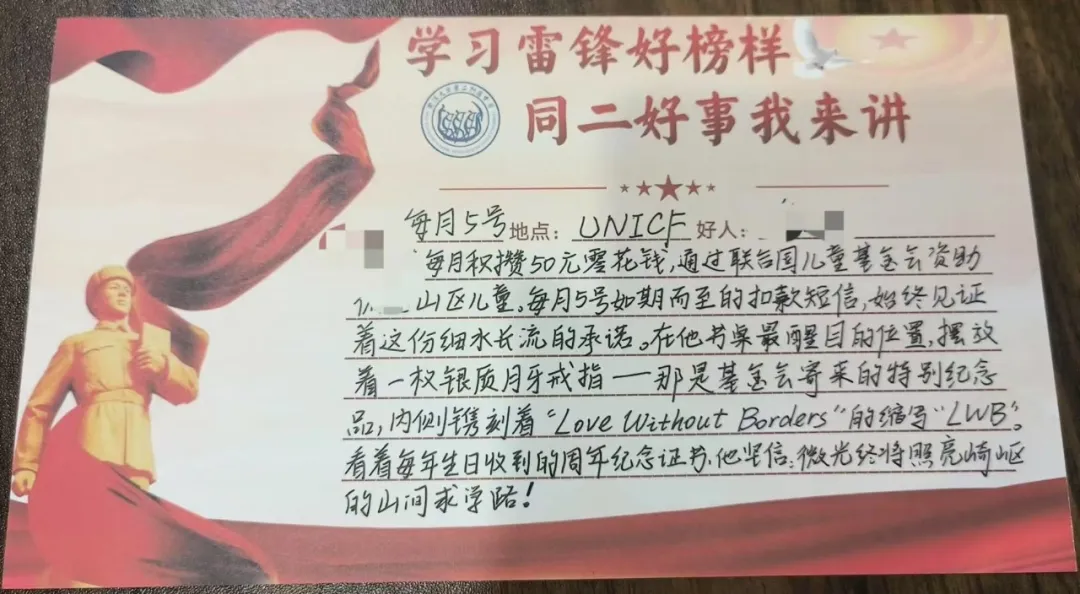 学习雷锋好榜样
同二好事我来讲
每月5号 地点：UNICF 好人：
每月积攒50元零花钱，通过联合国儿童基金会资助
山区儿童。每月5号如期而至的扣款短信，始终见证
着这份细水长流的承诺。在他书桌最醒目的位置，摆放
着一枚银质月牙戒指——那是基金会寄来的特别纪念
品，内侧镌刻着“Love Without Borders”的缩写“LWB”。
看着每年生日收到的周年纪念证书，他坚信：微光终将照亮崎岖
的山间求学路！